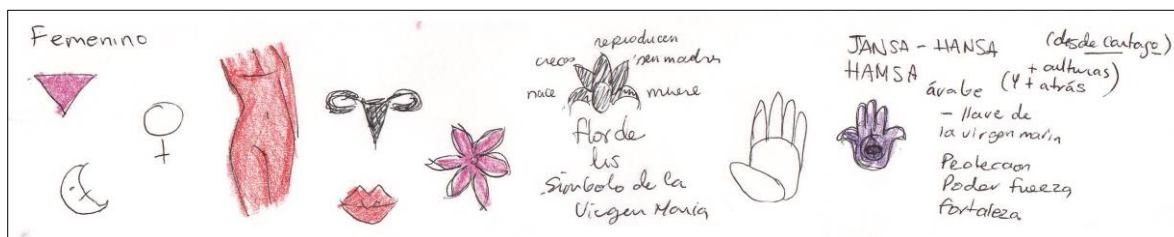 Femenino
reproducen
crecer
ser madres
nace
muere
flor de
lis
símbolo de la
Virgen María
JANSA - HANSA
(desde Cartago)
HAMSA
+ culturas
(y + atrás)
árabe
- llave de
la virgen maría
Proteccion
Poder fuerza
fortaleza